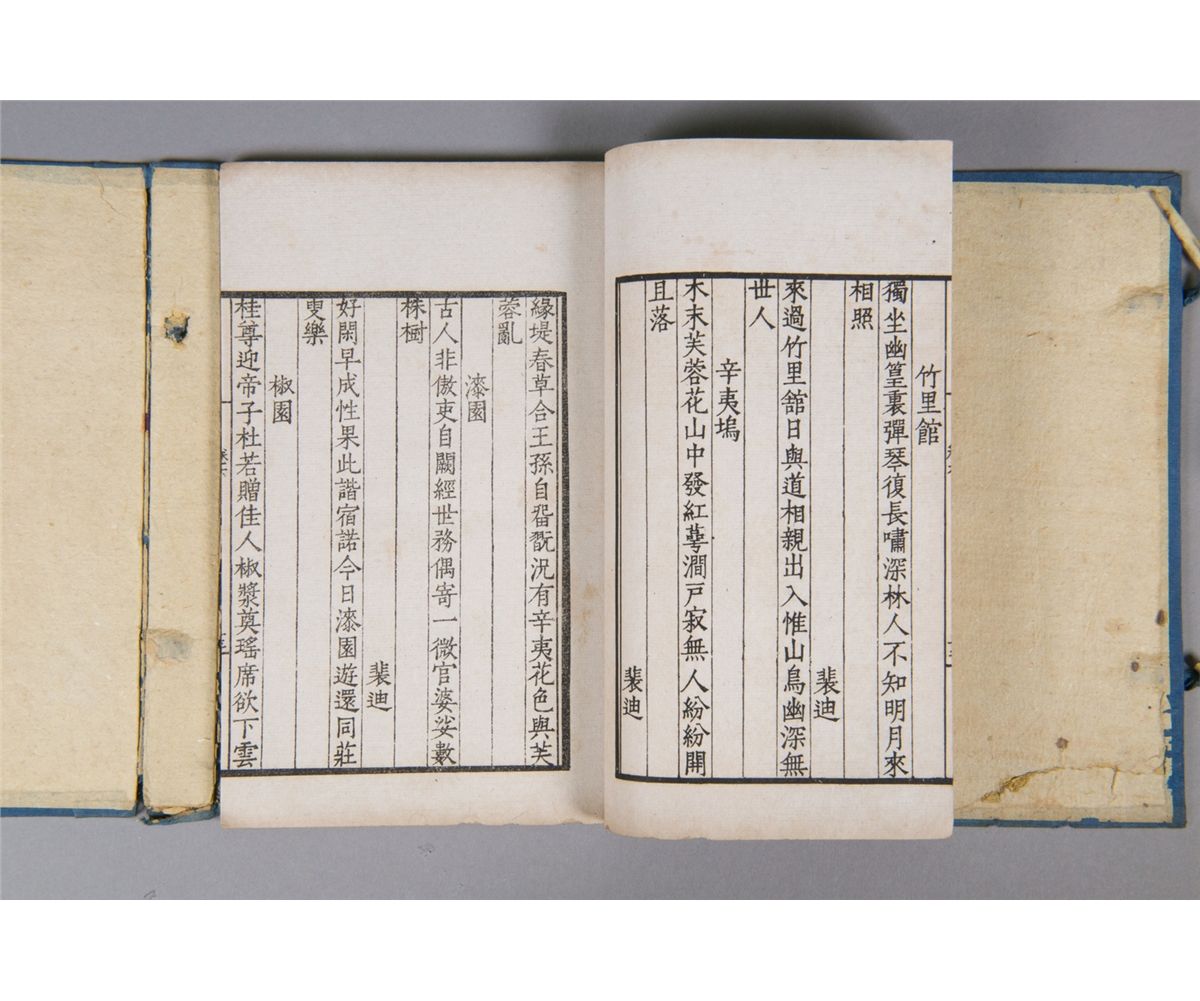 竹里館
獨坐幽篁裏彈琴復長嘯深林人不知明月來
相照
裴迪
來過竹里舘日與道相親出入惟山鳥幽深無
世人
辛夷塢
木末芙蓉花山中發紅萼澗戸寂無人紛紛開
且落
裴迪
緣堤春草合王孫自留翫況有辛夷花色與芙
蓉亂
漆園
古人非傲吏自闕經世務偶寄一微官婆娑數
株樹
裴迪
好閑早成性果此諧宿諾今日漆園遊還同莊
叟樂
椒園
桂尊迎帝子杜若贈佳人椒漿奠瑤席欲下雲